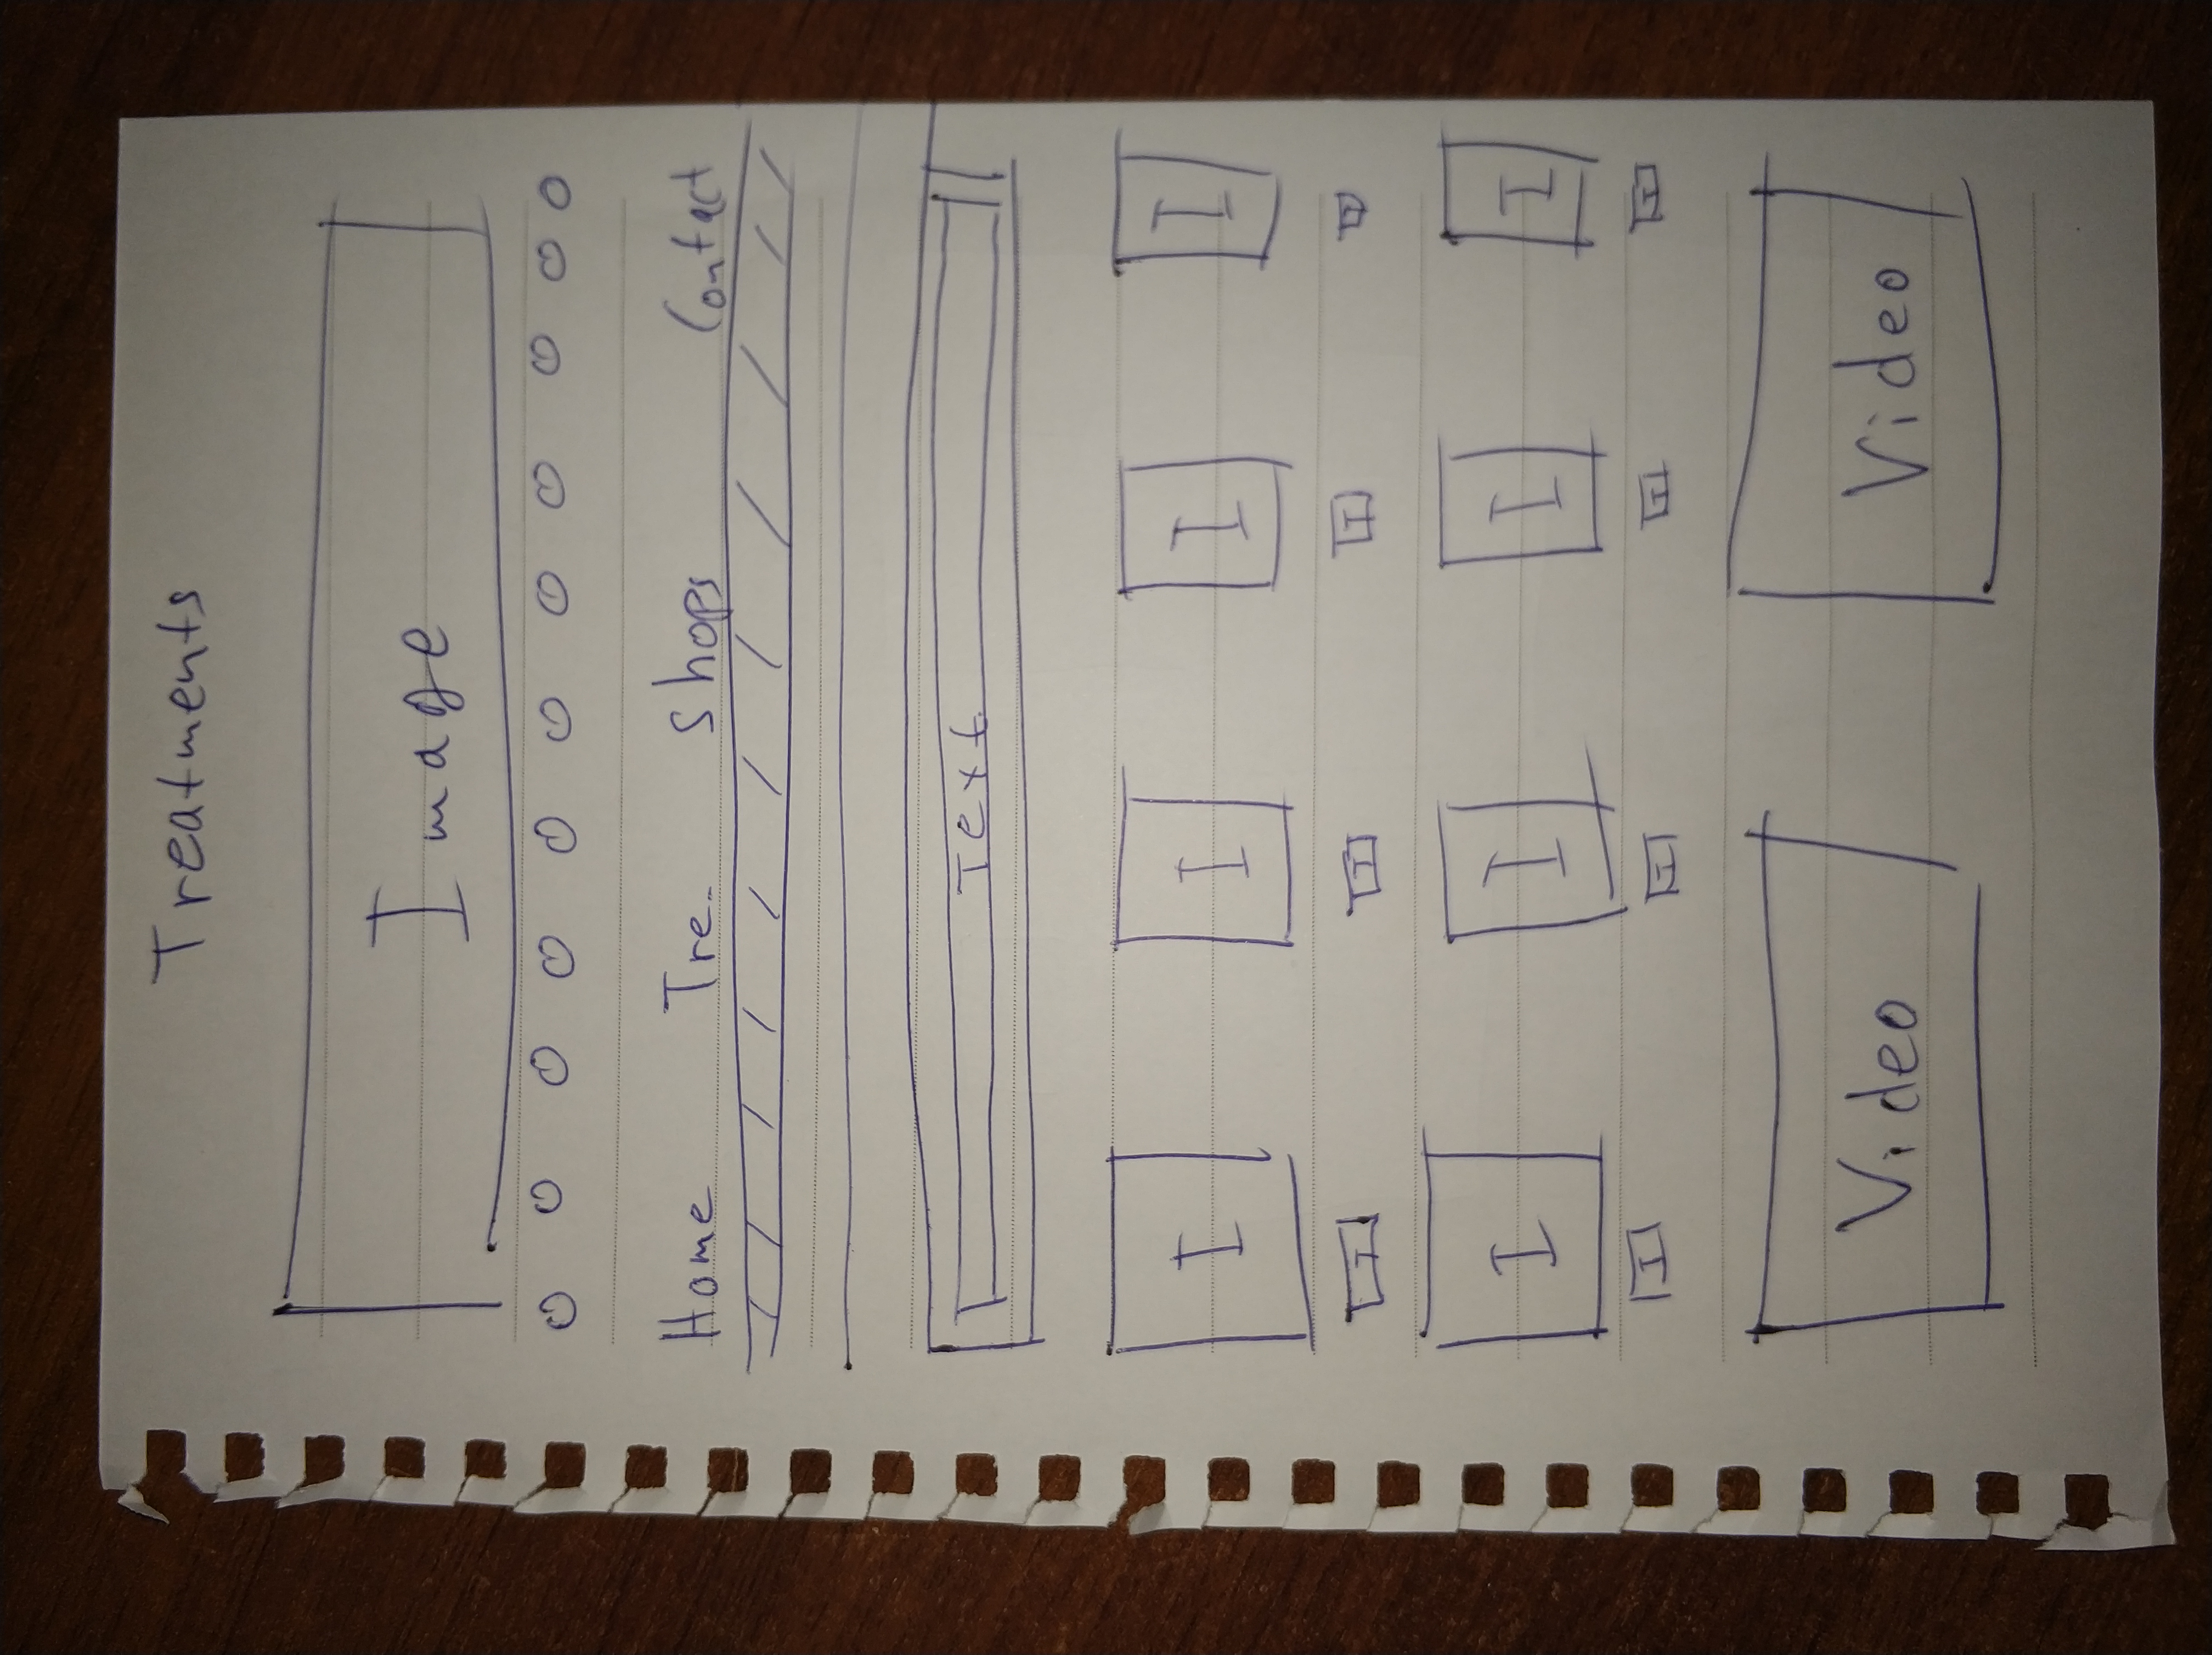 Treatments
Image
Home Tre. Shops Contact
Text
I I I I
I I I I
I I I I
I I I I
Video Video